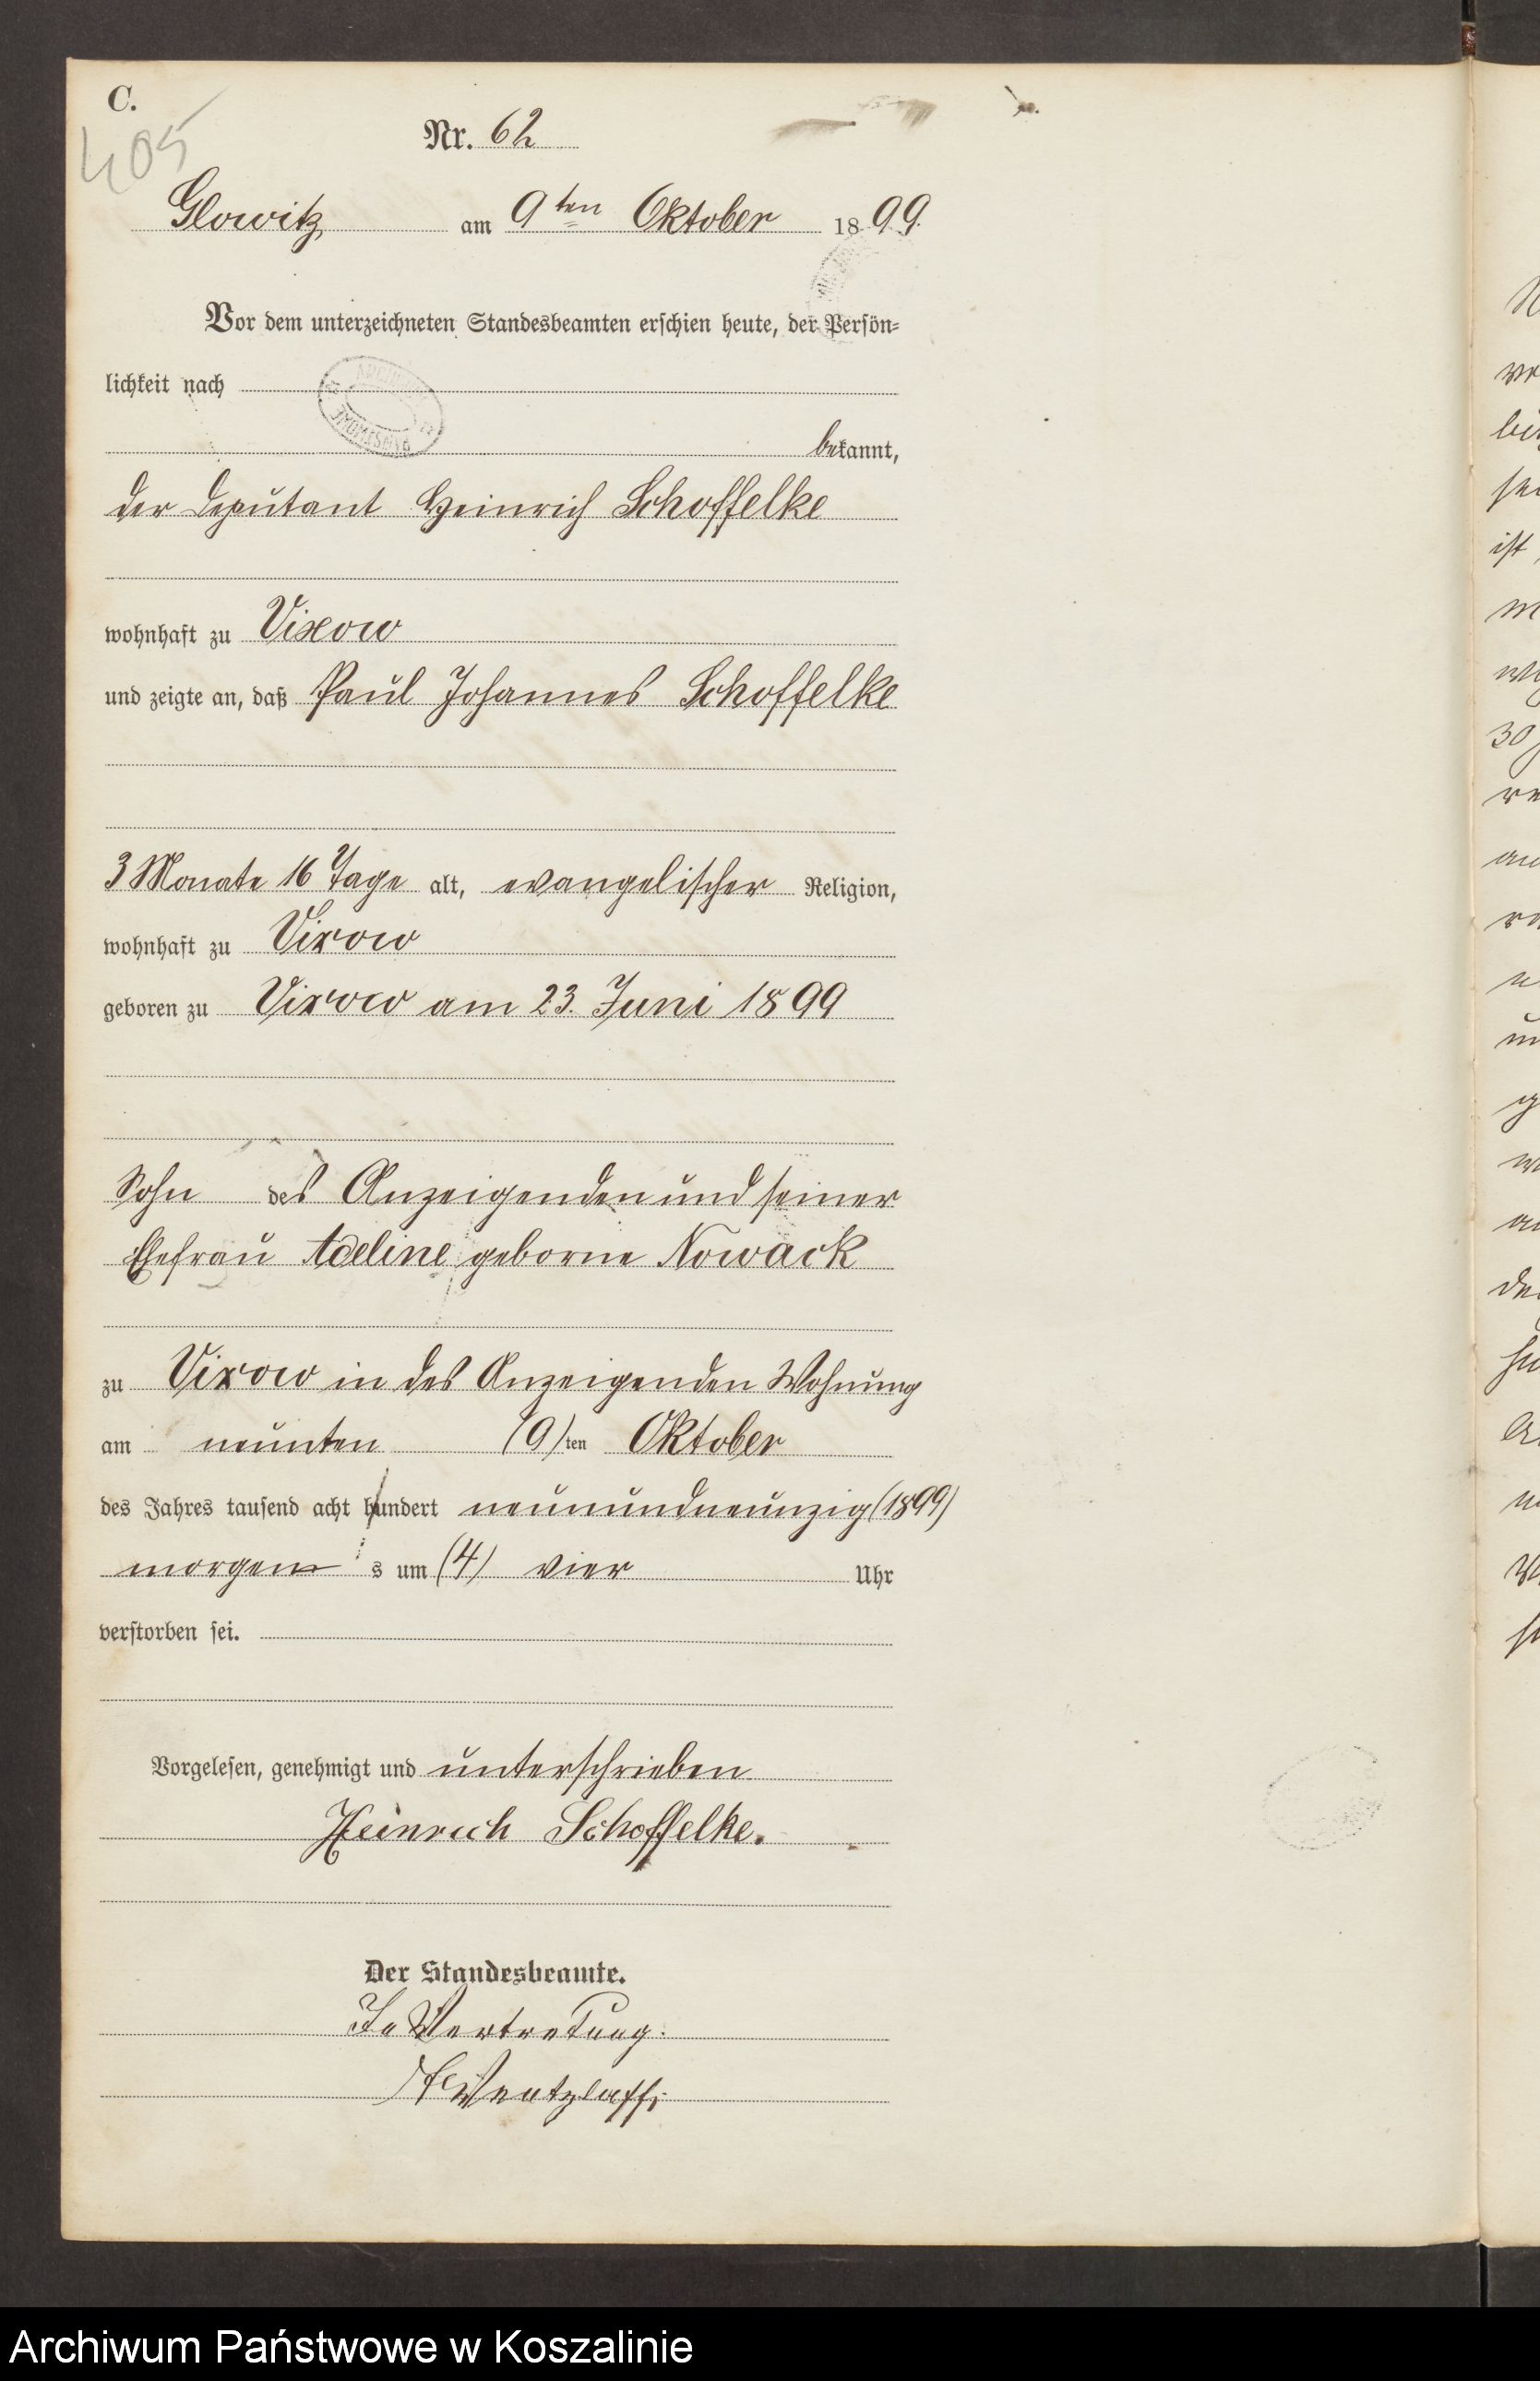 C.
405
Nr. 62
Glowitz am 9ten Oktober 1899.
Vor dem unterzeichneten Standesbeamten erschien heute, der Persön=
lichkeit nach
bekannt,
der Deputant Heinrich Schoffelke
wohnhaft zu Vixow
und zeigte an, daß Paul Johannes Schoffelke
3 Monate 16 Tage alt, evangelischer Religion,
wohnhaft zu Vixow
geboren zu Vixow am 23. Juni 1899
Sohn des Anzeigenden und seiner
Ehefrau Adeline geborne Nowack
zu Vixow in des Anzeigenden Wohnung
am neunten (9)ten Oktober
des Jahres tausend acht hundert neunundneunzig (1899)
morgens um (4) vier Uhr
verstorben sei.
Vorgelesen, genehmigt und unterschrieben
Heinrich Schoffelke.
Der Standesbeamte.
In Vertretung.
Wentzlaff
Archiwum Państwowe w Koszalinie